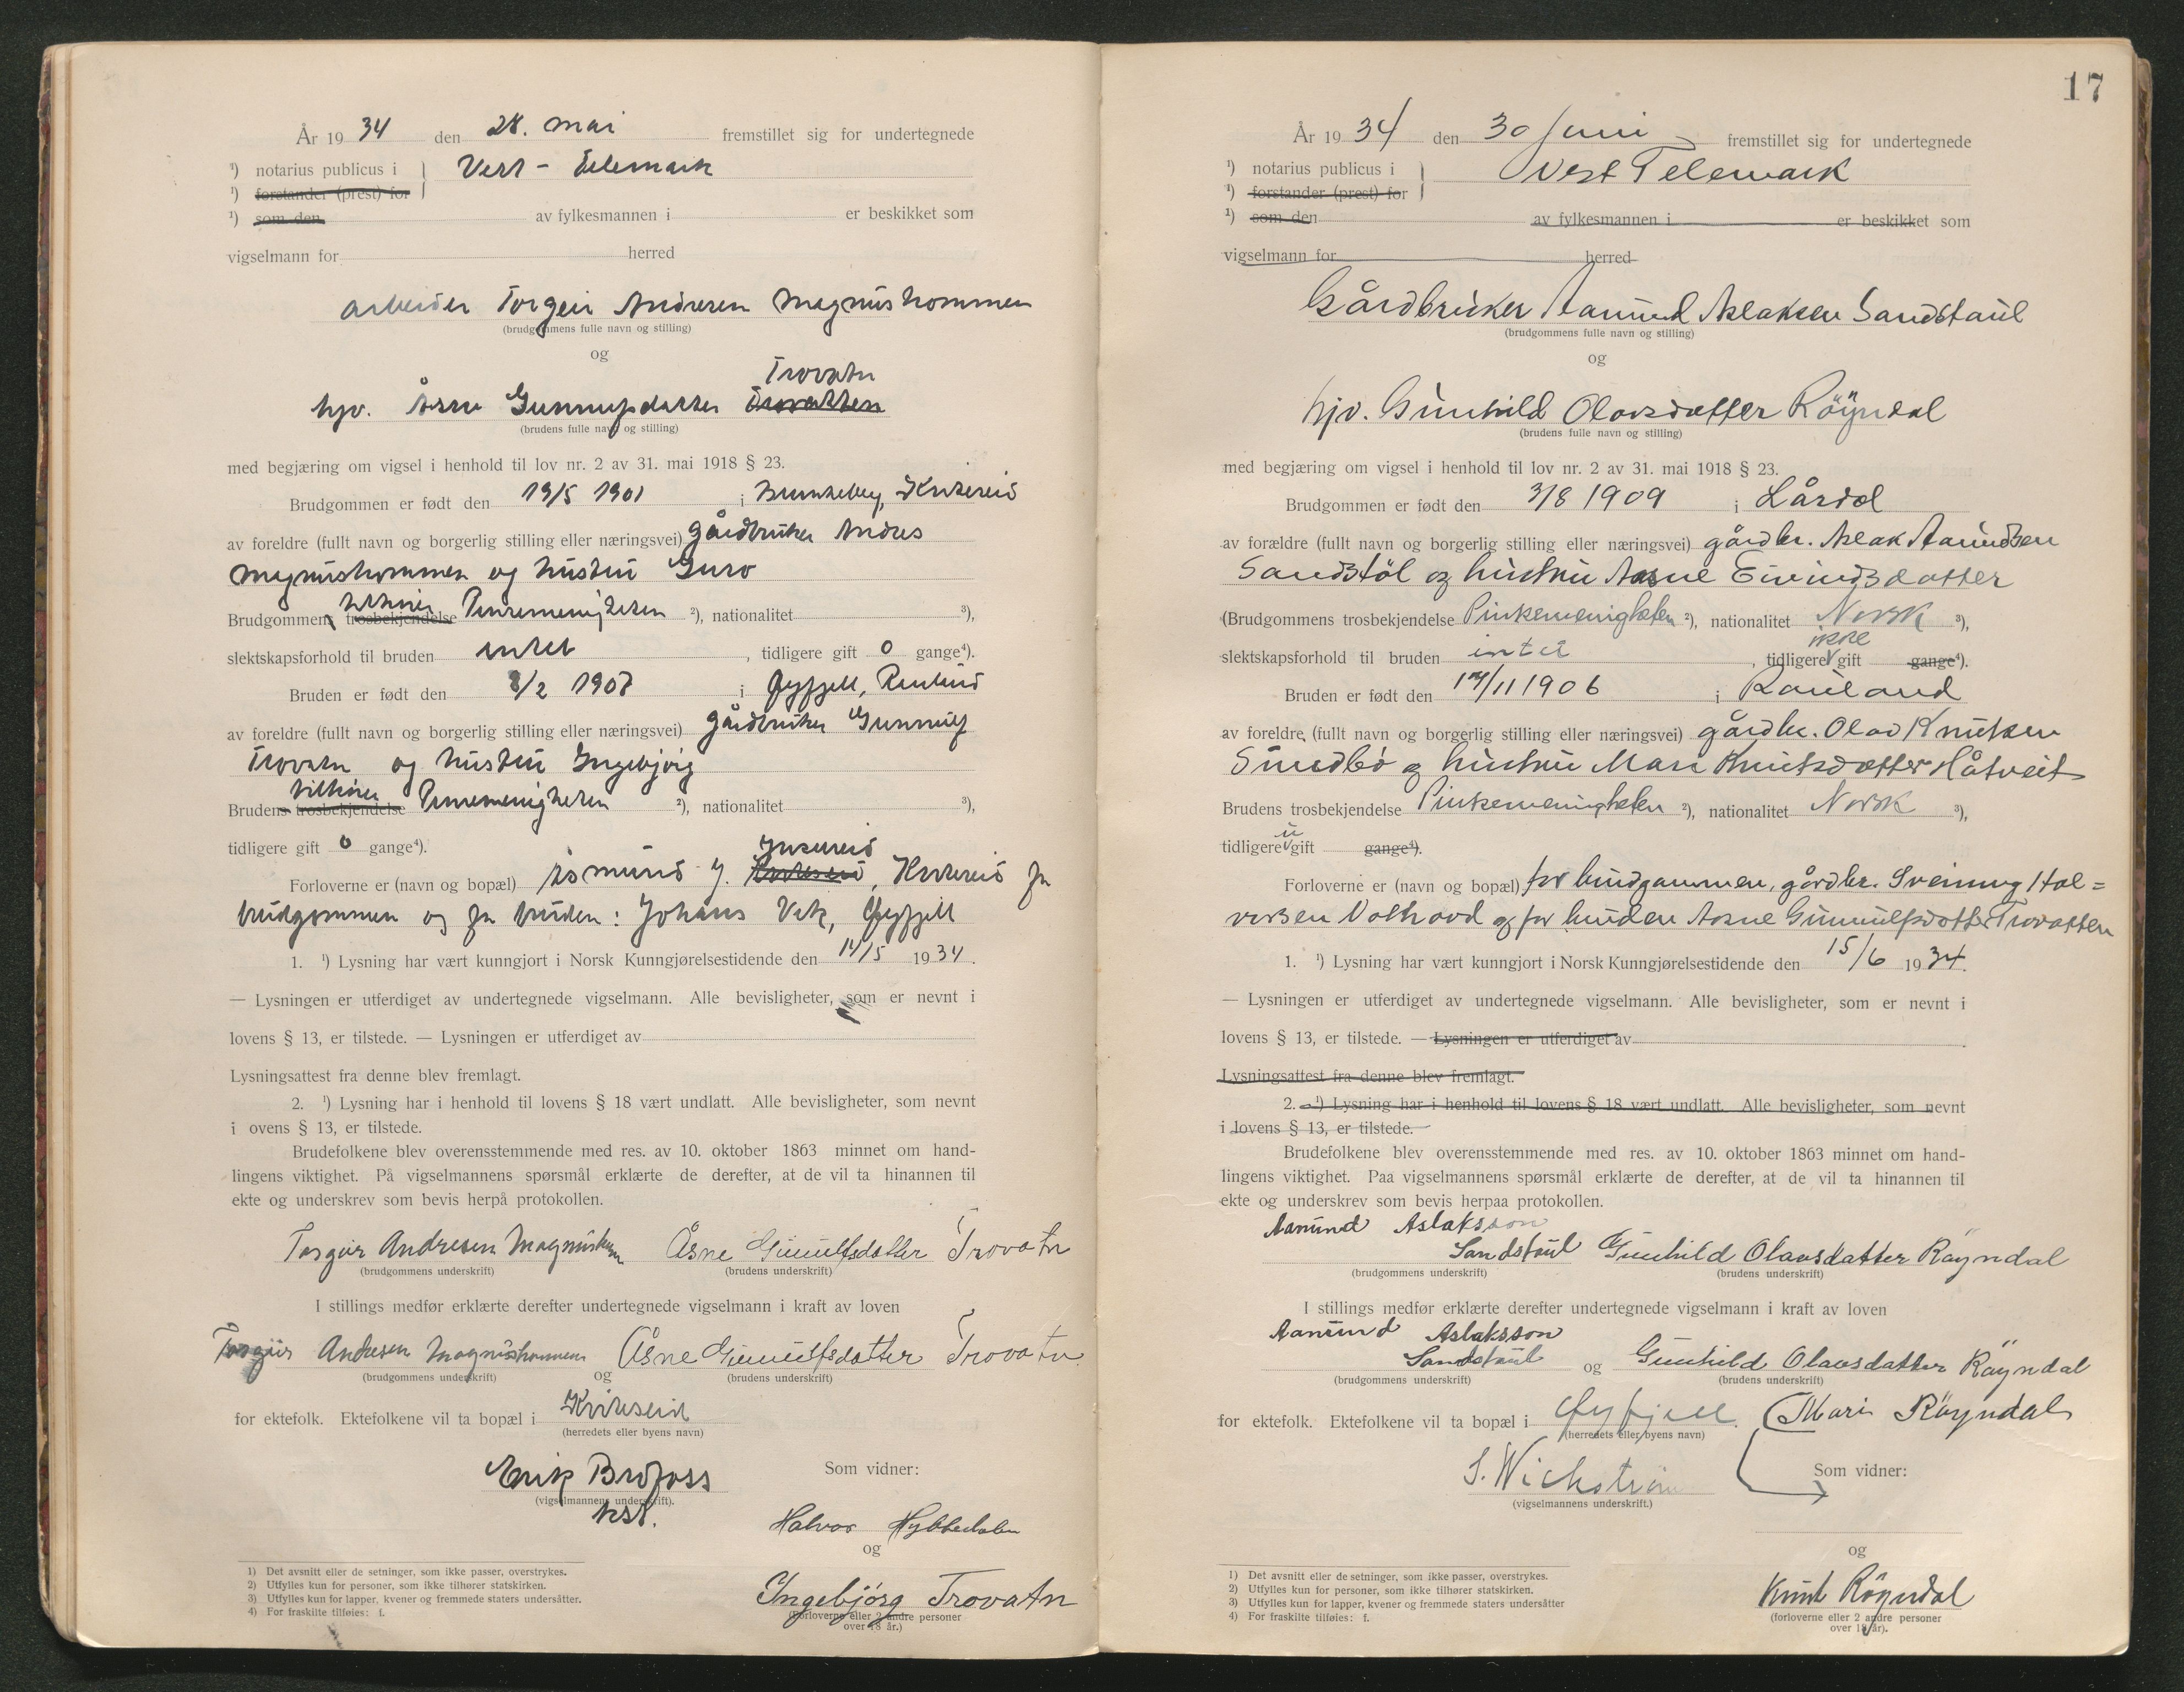 År 19 34 den 28. mai fremstillet sig for undertegnede
¹) notarius publicus i } Vest-Telemark
¹) forstander (prest) for
¹) som den av fylkesmannen i er beskikket som
vigselmann for herred
arbeider Torgeir Andresen Magnushommen
(brudgommens fulle navn og stilling)
og
Trovatn
hjv. Åsne Gunnulfsdatter Trovatten
(brudens fulle navn og stilling)
med begjæring om vigsel i henhold til lov nr. 2 av 31. mai 1918 § 23.
Brudgommen er født den 19/5 1901 i Brunkeberg, Kviteseid
av foreldre (fullt navn og borgerlig stilling eller næringsvei) gårdbruker Andres
Magnushommen og hustru Guro
tilhører
Brudgommens trosbekjendelse Pinsemenigheten ²), nationalitet ³),
slektskapsforhold til bruden intet , tidligere gift 0 gange⁴).
Bruden er født den 8/2 1907 i Øyfjell, Rauland
av foreldre (fullt navn og borgerlig stilling eller næringsvei) gårdbruker Gunnulf
Trovatn og hustru Ingebjörg
tilhører
Brudens trosbekjendelse Pinsemenigheten ²), nationalitet ³),
tidligere gift 0 gange⁴).
Forloverne er (navn og bopæl) Åsmund J. Kviteseid, Kviteseid for
brudgommen og for bruden: Johans Vik, Øyfjell
1. ¹) Lysning har vært kunngjort i Norsk Kunngjørelsestidende den 11/5 1934.
— Lysningen er utferdiget av undertegnede vigselmann. Alle bevisligheter, som er nevnt i
lovens § 13, er tilstede. — Lysningen er utferdiget av
Lysningsattest fra denne blev fremlagt.
2. ¹) Lysning har i henhold til lovens § 18 vært undlatt. Alle bevisligheter, som nevnt
i ovens § 13, er tilstede.
Brudefolkene blev overensstemmende med res. av 10. oktober 1863 minnet om hand-
lingens viktighet. På vigselmannens spørsmål erklærte de derefter, at de vil ta hinannen til
ekte og underskrev som bevis herpå protokollen.
Torgeir Andresen Magnushommen Åsne Gunnulfsdatter Trovatn
(brudgommens underskrift) (brudens underskrift)
I stillings medfør erklærte derefter undertegnede vigselmann i kraft av loven
Torgeir Andresen Magnushommen Åsne Gunnulfsdatter Trovatn
(brudgommens underskrift) og (brudens underskrift)
for ektefolk. Ektefolkene vil ta bopæl i Kviteseid
(herredets eller byens navn)
Erik Brofoss Som vidner:
(vigselmannens underskrift).
kst.
Halvor
og
Ingebjörg Trovatn
(forloverne eller 2 andre personer
over 18 år.)
1) Det avsnitt eller de setninger, som ikke passer, overstrykes.
2) Utfylles kun for personer, som ikke tilhører statskirken.
3) Utfylles kun for lapper, kvener og fremmede staters undersåtter.
4) For fraskilte tilføies: f.
17
År 19 34 den 30 Juni fremstillet sig for undertegnede
¹) notarius publicus i } Vest Telemark
¹) forstander (prest) for
¹) som den av fylkesmannen i er beskikket som
vigselmann for herred
Gårdbruker Aamund Aslaksen Sandstaul
(brudgommens fulle navn og stilling)
og
hjv. Gunhild Olavsdatter Röyndal
(brudens fulle navn og stilling)
med begjæring om vigsel i henhold til lov nr. 2 av 31. mai 1918 § 23.
Brudgommen er født den 3/8 1909 i Lårdal
av forældre (fullt navn og borgerlig stilling eller næringsvei) gårdbr. Aslak Aamundsen
Sandstöl og hustru Aasne Eivindsdatter
(Brudgommens trosbekjendelse Pinsemenigheten ²), nationalitet Norsk ³),
ikke
slektskapsforhold til bruden intet , tidligere gift gange⁴).
Bruden er født den 14/11 1906 i Rauland
av foreldre (fullt navn og borgerlig stilling eller næringsvei) gårdbr. Olav Knutsen
Sundbö og hustru Mari Knutsdatter Håtveit
Brudens trosbekjendelse Pinsemenigheten ²), nationalitet Norsk ³),
u
tidligere gift gange⁴).
Forloverne er (navn og bopæl) for brudgommen, gårdbr. Sveinung Hal=
vorsen Vathovd og for bruden Aasne Gunnulfsdatter Trovatten
1. ¹) Lysning har vært kunngjort i Norsk Kunngjørelsestidende den 15/6 1934.
— Lysningen er utferdiget av undertegnede vigselmann. Alle bevisligheter, som er nevnt i
lovens § 13, er tilstede. — Lysningen er utferdiget av
Lysningsattest fra denne blev fremlagt.
2. ¹) Lysning har i henhold til lovens § 18 vært undlatt. Alle bevisligheter, som nevnt
i lovens § 13, er tilstede.
Brudefolkene blev overensstemmende med res. av 10. oktober 1863 minnet om hand-
lingens viktighet. Paa vigselmannens spørsmål erklærte de derefter, at de vil ta hinannen til
ekte og underskrev som bevis herpaa protokollen.
Aamund Aslaksson
Sandstaul Gunhild Olavsdatter Röyndal
(brudgommens underskrift) (brudens underskrift)
I stillings medfør erklærte derefter undertegnede vigselmann i kraft av loven
Aamund Aslaksson
Sandstaul og Gunhild Olavsdatter Röyndal
(brudgommens underskrift) (brudens underskrift)
for ektefolk. Ektefolkene vil ta bopæl i Øyfjell. Mari Röyndal
(herredets eller byens navn)
S. Wichstrøm Som vidner:
(vigselmannens underskrift.)
og
Knut Röyndal
(forloverne eller 2 andre personer
over 18 år).
1) Det avsnitt eller de setninger, som ikke passer, overstrykes.
2) Utfylles kun for personer, som ikke tilhører statskirken.
3) Utfylles kun for lapper, kvener og fremmede staters undersåtter
4) For fraskilte tilføies: f.